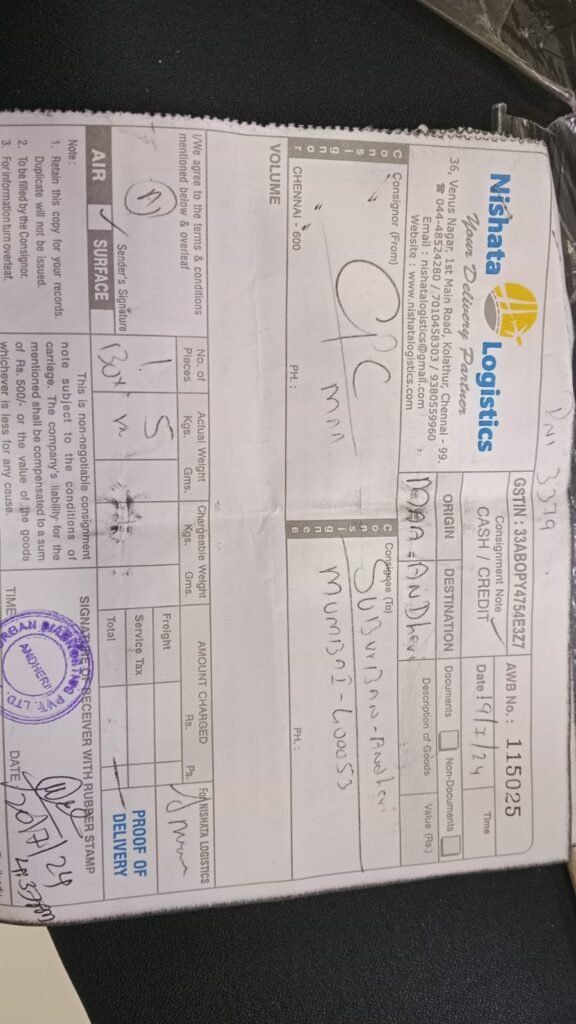 Nishata Logistics
Your Delivery Partner
36, Venus Nagar, 1st Main Road, Kolathur, Chennai - 99.
☎ 044-48524280 / 7010458303 / 9380559960
Email : nishatalogistics@gmail.com
Website : www.nishatalogistics.com
3379
GSTIN : 33ABOPY4754E3Z7
AWB No.: 115025
Consignment Note
CASH / CREDIT
Date 19/7/24
Time
ORIGIN
DESTINATION
MAA
ANDheri
Documents
Non-Documents
Description of Goods
Value (Rs.)
Consignor
Consignor (From)
CPC
MAA
CHENNAI - 600
PH.:
Consignee
Consignee (To)
SUBURBAN-Andheri
MUMBAI-400053
PH.:
VOLUME
I/We agree to the terms & conditions
mentioned below & overleaf
Sender's Signature
AIR ✓ SURFACE
No. of
Pieces
Actual Weight
Kgs. Gms.
Chargeable Weight
Kgs. Gms.
AMOUNT CHARGED
Rs. Ps.
1
Box
5
Freight
Service Tax
Total
For NISHATA LOGISTICS
PROOF OF
DELIVERY
Note :
1. Retain this copy for your records.
Duplicate will not be issued.
2. To be filled by the Consignor.
3. For information turn overleaf.
This is non-negotiable consignment
note subject to the conditions of
carriage. The company's liability for the
mentioned shall be compensated to a sum
of Rs. 500/- or the value of the goods
whichever is less for any cause.
SIGNATURE OF RECEIVER WITH RUBBER STAMP
ANDHERI
PVT. LTD.
TIME
DATE 20/7/24